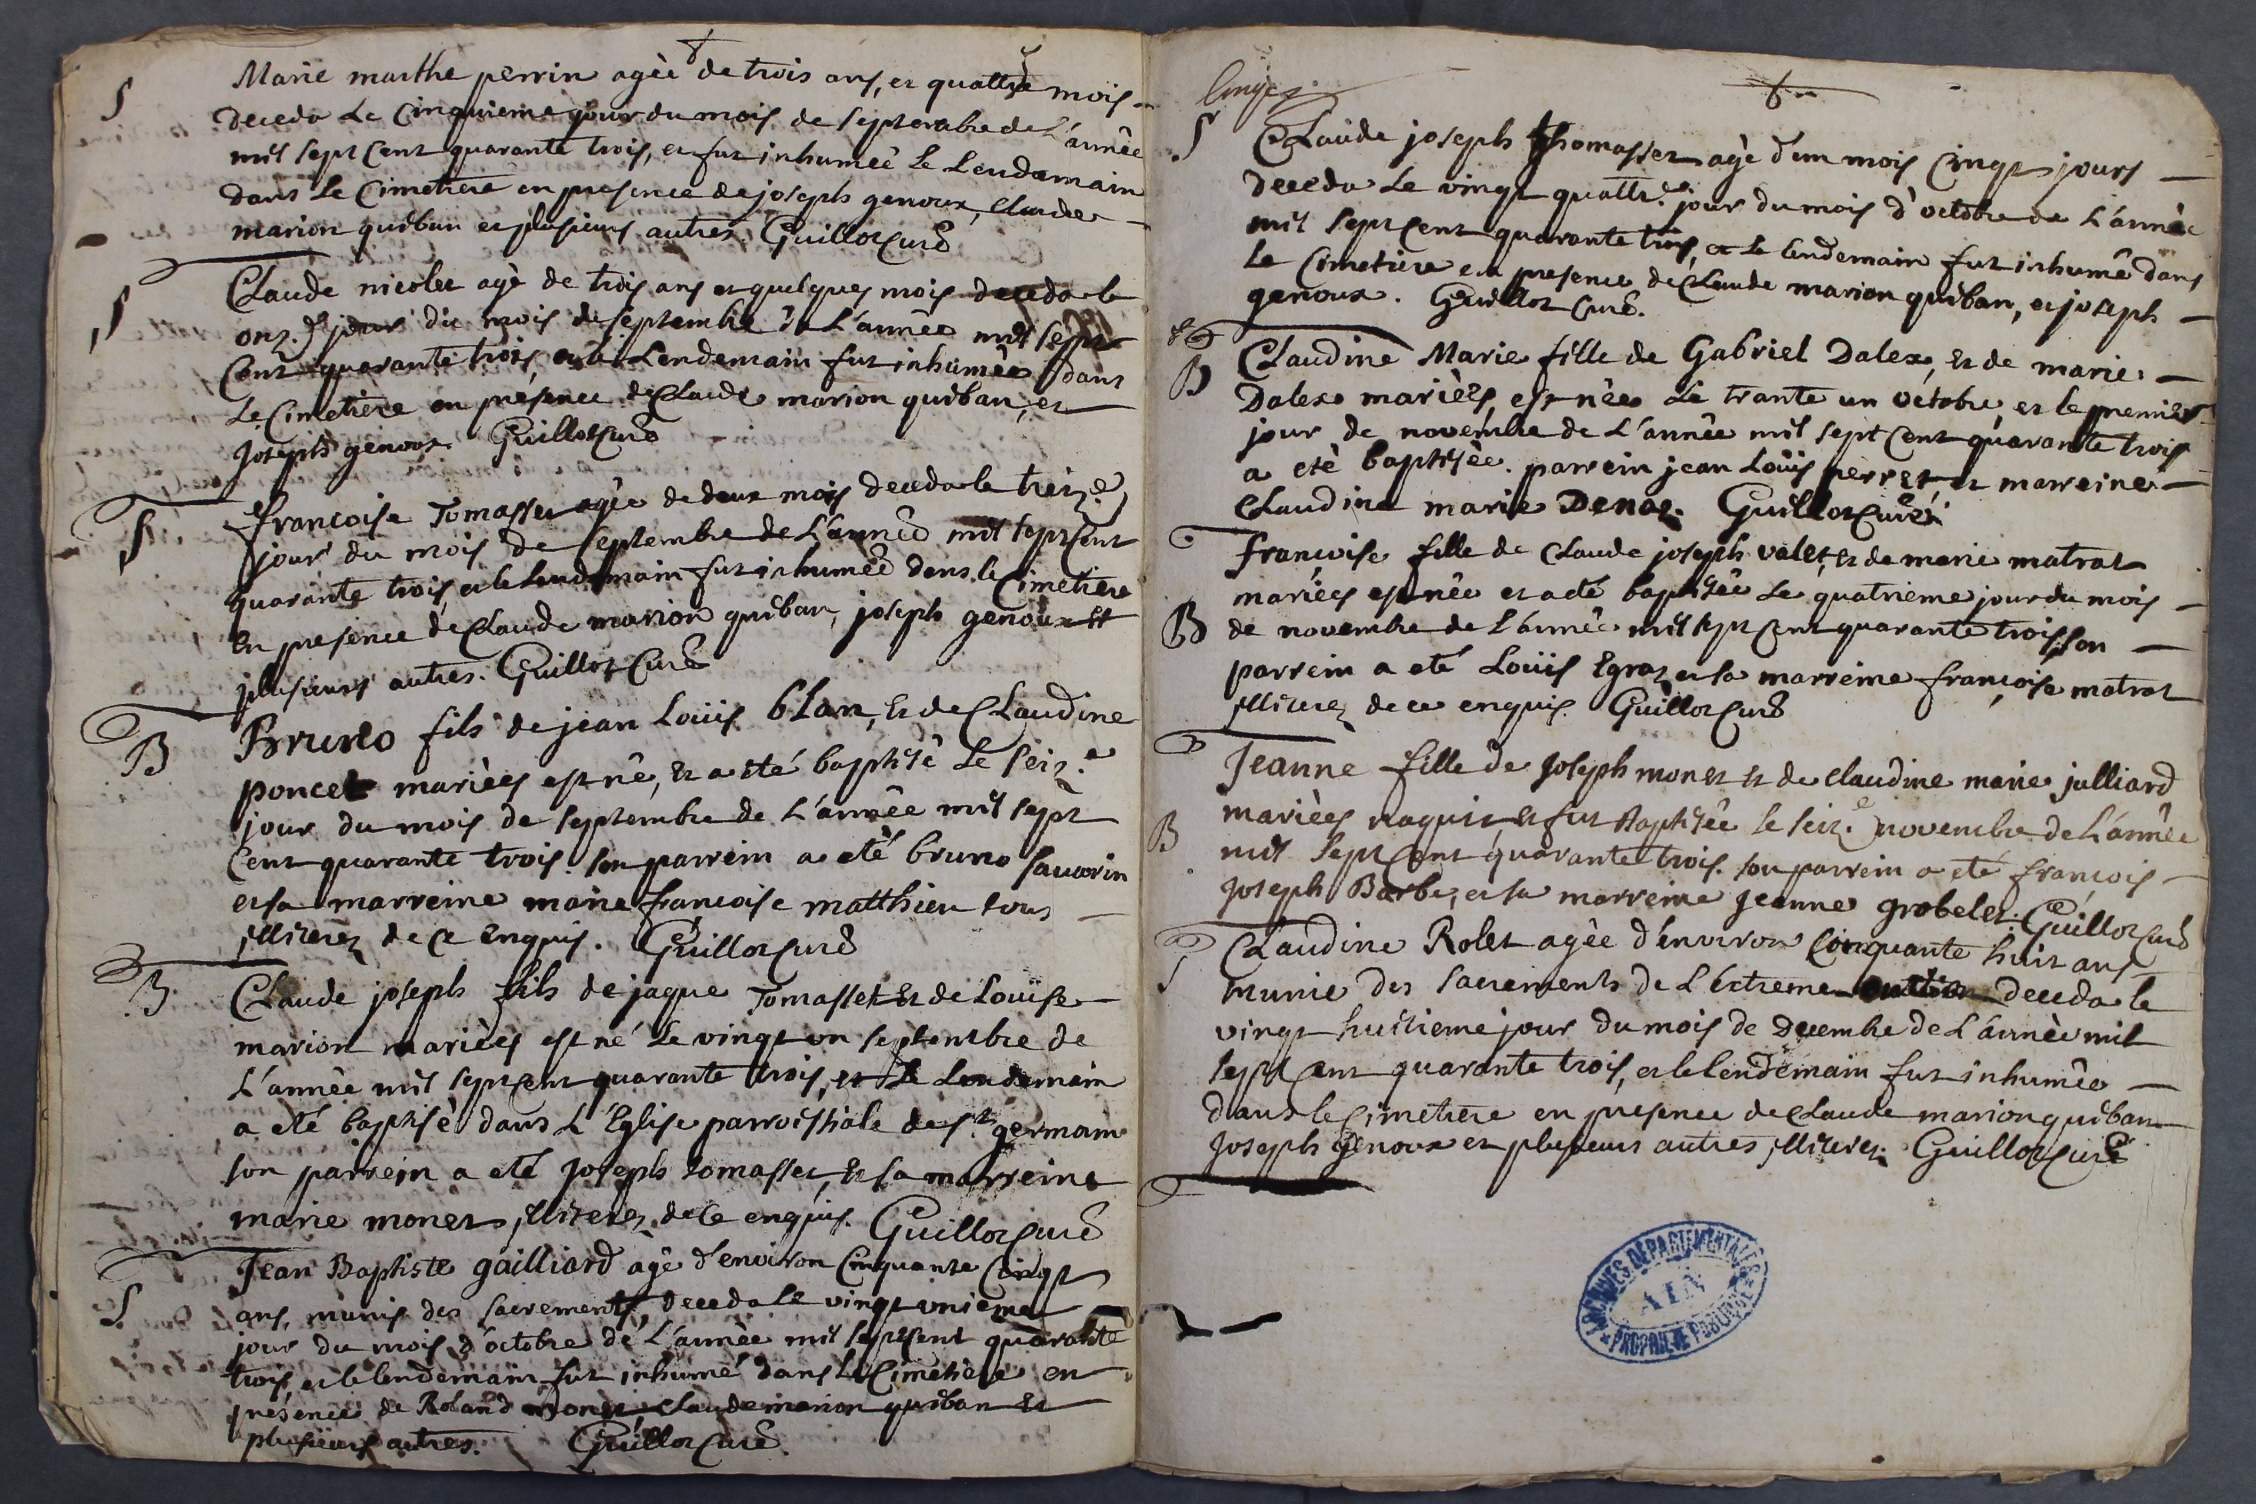 S
Marie marthe perrin agèe de trois ans, et quattre mois
deceda le cinquieme jour du mois de septembre de L'année
mil sept cent quarante trois, et fut inhumeè le Lendemain
dans le Cimetiere en presence de joseph genoux, claude
marion guèban et plusieurs autres. Guillot Curé
S
Claude nicolet agè de trois ans et quelques mois deceda le
onz.e jour du mois de septembre de L'année mil sept
Cent quarante trois, et le Lendemain fut inhumèe dans
Le Cimetiere en présence de Claude marion guèban, et
Joseph genoox. Guillot Curé
S
francoise Tomasset agèe de deux mois deceda le treiz.e
jour du mois de septembre de L'année mil sept cent
quarante trois, et le lendemain fut inhumeé dans le Cimetiere
en presence de Claude marion guèban, joseph genoux et
plusieurs autres. Guillot Curé
B
Bruno fils de jean Loüis blan, et de Claudine
poncet mariès est né, et a eté baptisé le seiz.e
jour du mois de septembre de L'année mil sept
cent quarante trois. son parrein a eté bruno savarin
et sa marreine marie francoise matthieu tous
illiterez de ce enquis. Guillot Curé
B
Claude joseph fils de jaque Tomasset et de Loüise
marion mariès est né le vingt un septembre de
L'année mil sept cent quarante trois, et le Lendemain
a eté baptisé dans L'Eglise parroissiale de s.t germain
son parrein a eté joseph tomasset, et sa marreine
marie monet, illiterez de ce enquis. Guillot Curé
S
Jean Baptiste gailliard agé d'environ Cinquante Cinqt
ans, munis des sacrements, deceda le vingt unieme
jour du mois d'octobre de L'année mil sept cent quarante
trois, et le lendemain fut inhumé dans le Cimetiere en
présence de Roland monet, claude marion guèban et
plusieurs autres. Guillot Curé.
S
Claude joseph thomasset agé d'un mois Cinqt jours
deceda le vingt quattr.e jour du mois d'octobre de L'année
mil sept cent quarante trois, et le lendemain fut inhumé dans
le Cimetiere en presence de Claude marion guèban, et joseph
genoux. Guillot Curé.
B
Claudine Marie fille de Gabriel Dalex, et de marie
Dalex mariès, est née le trante un octobre, et le premier
jour de novembre de L'année mil sept Cent quarante trois
a eté baptisèe. parrein jean Loüis perret et marreine
Claudine marie Denae. Guillot Curé
B
françoise fille de Claude joseph valet, et de marie matrat
mariés est née et a eté baptisée le quatrieme jour du mois
de novembre de L'année mil sept cent quarante trois. son
parrein a eté Loüis Egraz et sa marreine françoise matrat
illiterez de ce enquis. Guillot Curé
B
Jeanne fille de Joseph monet et de claudine marie julliard
mariès naquit, et fut Baptisée le seiz.e novembre de L'année
mil sept Cent quarante trois. son parrein a eté françois
Joseph Barbe, et sa marreine Jeanne grobelet. Guillot Curé
S
Claudine Rolet agèe d'environ Cinquante huit ans
munie des sacrements de L'extreme onction deceda le
vingt huitieme jour du mois de decembre de L'année mil
sept cent quarante trois, et le lendemain fut inhumée
dans le Cimetiere en presence de Claude marion guèban
Joseph Genoux et plusieurs autres illiterez. Guillot Curé
ARCHIVES DÉPARTEMENTALES
AIN
PROPRIÉTÉ PUBLIQUE